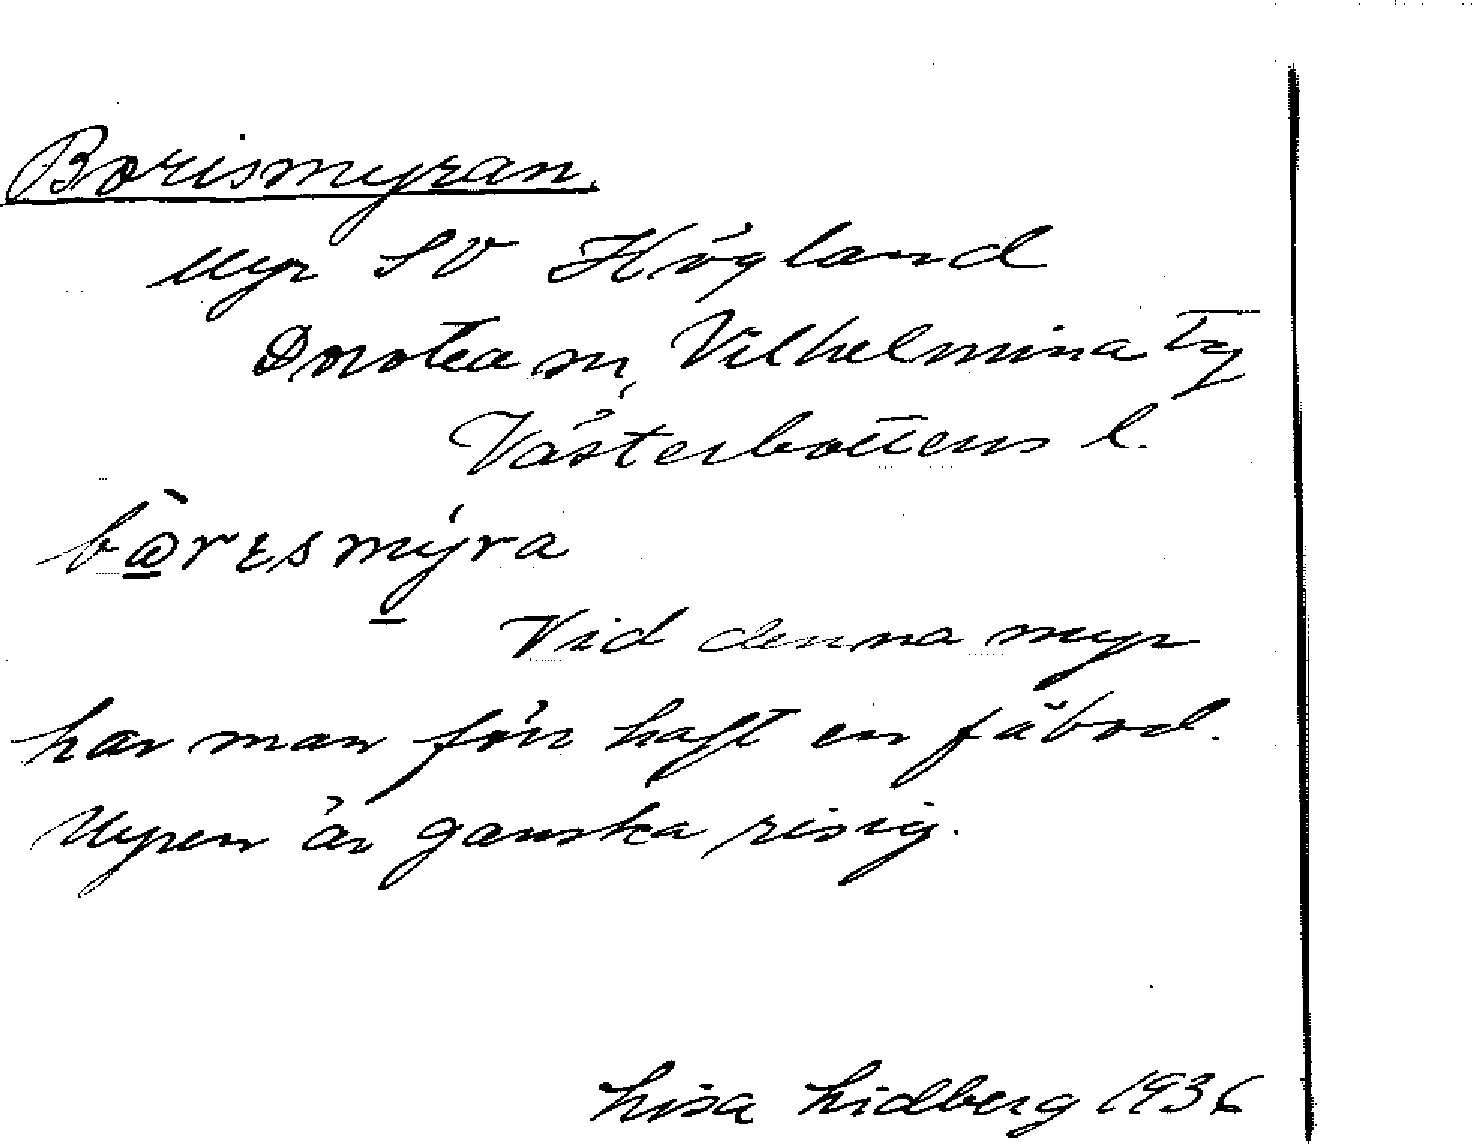 Borismyran.
Myr SV Högland
Dorotea sn, Vilhelmina tg
Västerbottens l.
Vid denna myr
har man förr haft en fäbod.
Myren är ganska risig.
Lisa Lidberg 1936